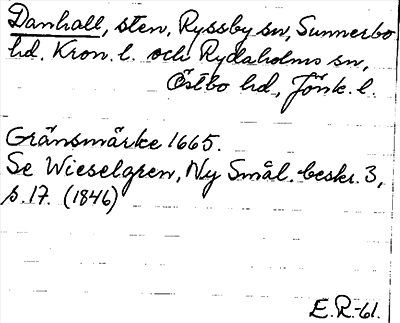 Danhall, sten, Ryssby sn, Sunnerbo
hd. Kron. l. och Rydaholms sn,
Östbo hd, Jönk. l.
Gränsmärke 1665.
Se Wieselgren, Ny Smål. beskr. 3,
s. 17. (1846)
E.R.-61.